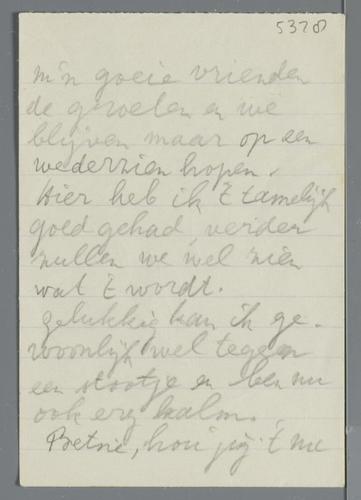 5378
m'n goeie vrienden
de groeten en we
blijven maar op een
wederzien hopen.
Hier heb ik 't tamelijk
goed gehad, verder
zullen we wel zien
wat 't wordt.
Gelukkig kan ik ge-
woonlijk wel tegen
een stootje en ben nu
ook erg kalm.
Betsie, hou jij 't me